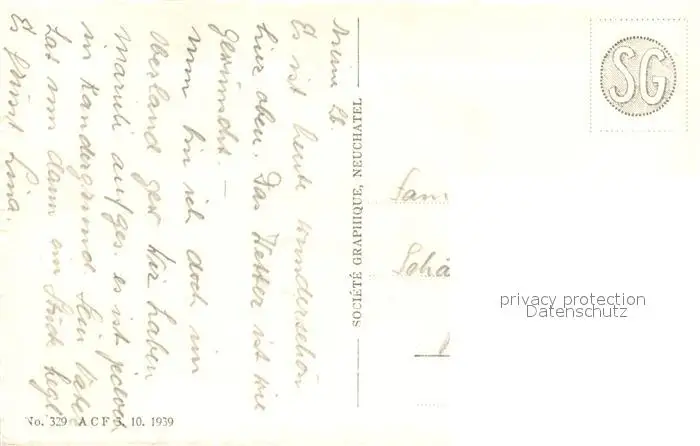 Meine Lb.
Es ist heute wunderschön
hier oben. Das Wetter ist wie
gewünscht. –
Nun bin ich doch im
Oberland gew. Wir haben
Marieli aufges. es ist jedoch
in Kandergrund. Sein Vater
Las uns dann ein Stück
Es grüsst Lina.
SOCIÉTÉ GRAPHIQUE, NEUCHATEL
SG
Fam
Schä
privacy protection
Datenschutz
No. 329 A C F 3. 10. 1939